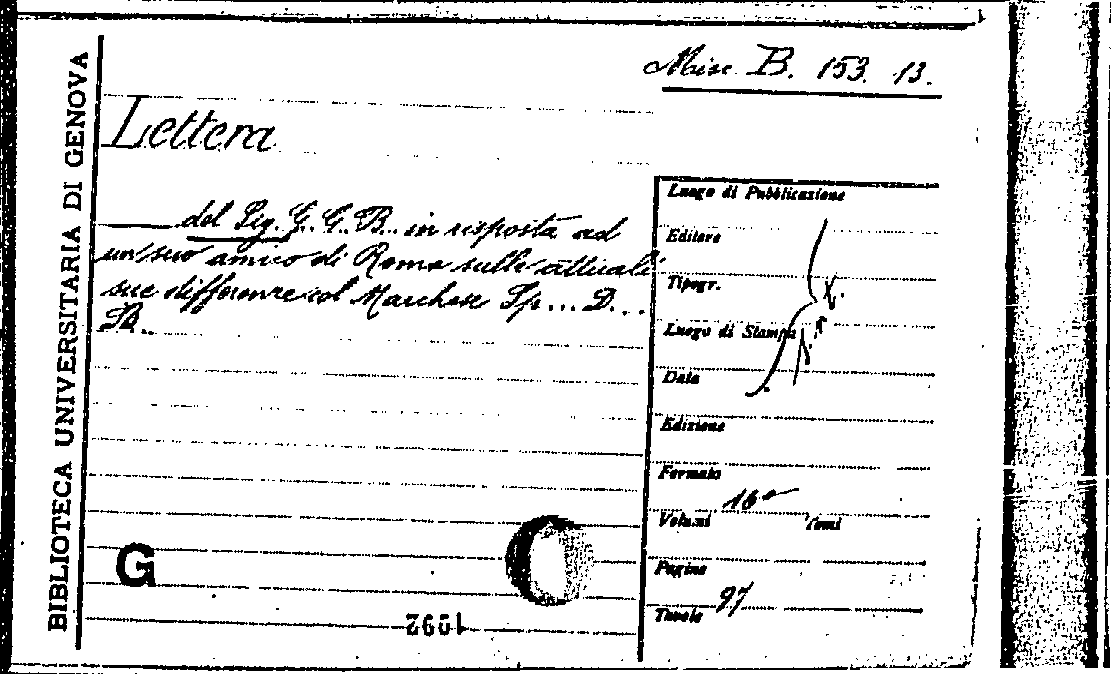 BIBLIOTECA UNIVERSITARIA DI GENOVA
Misc. B. 153. 13.
Lettera
del Sig. G. G. B.. in risposta ad
un suo amico di Roma sulle attuali
sue differenze col Marchese Sp... D...
B..
Luogo di Pubblicazione
Editore
Tipogr.
Luogo di Stampa
Data
Edizione
Formato
16°
Volumi Tomi
Pagine
97
Tavole
G
1692